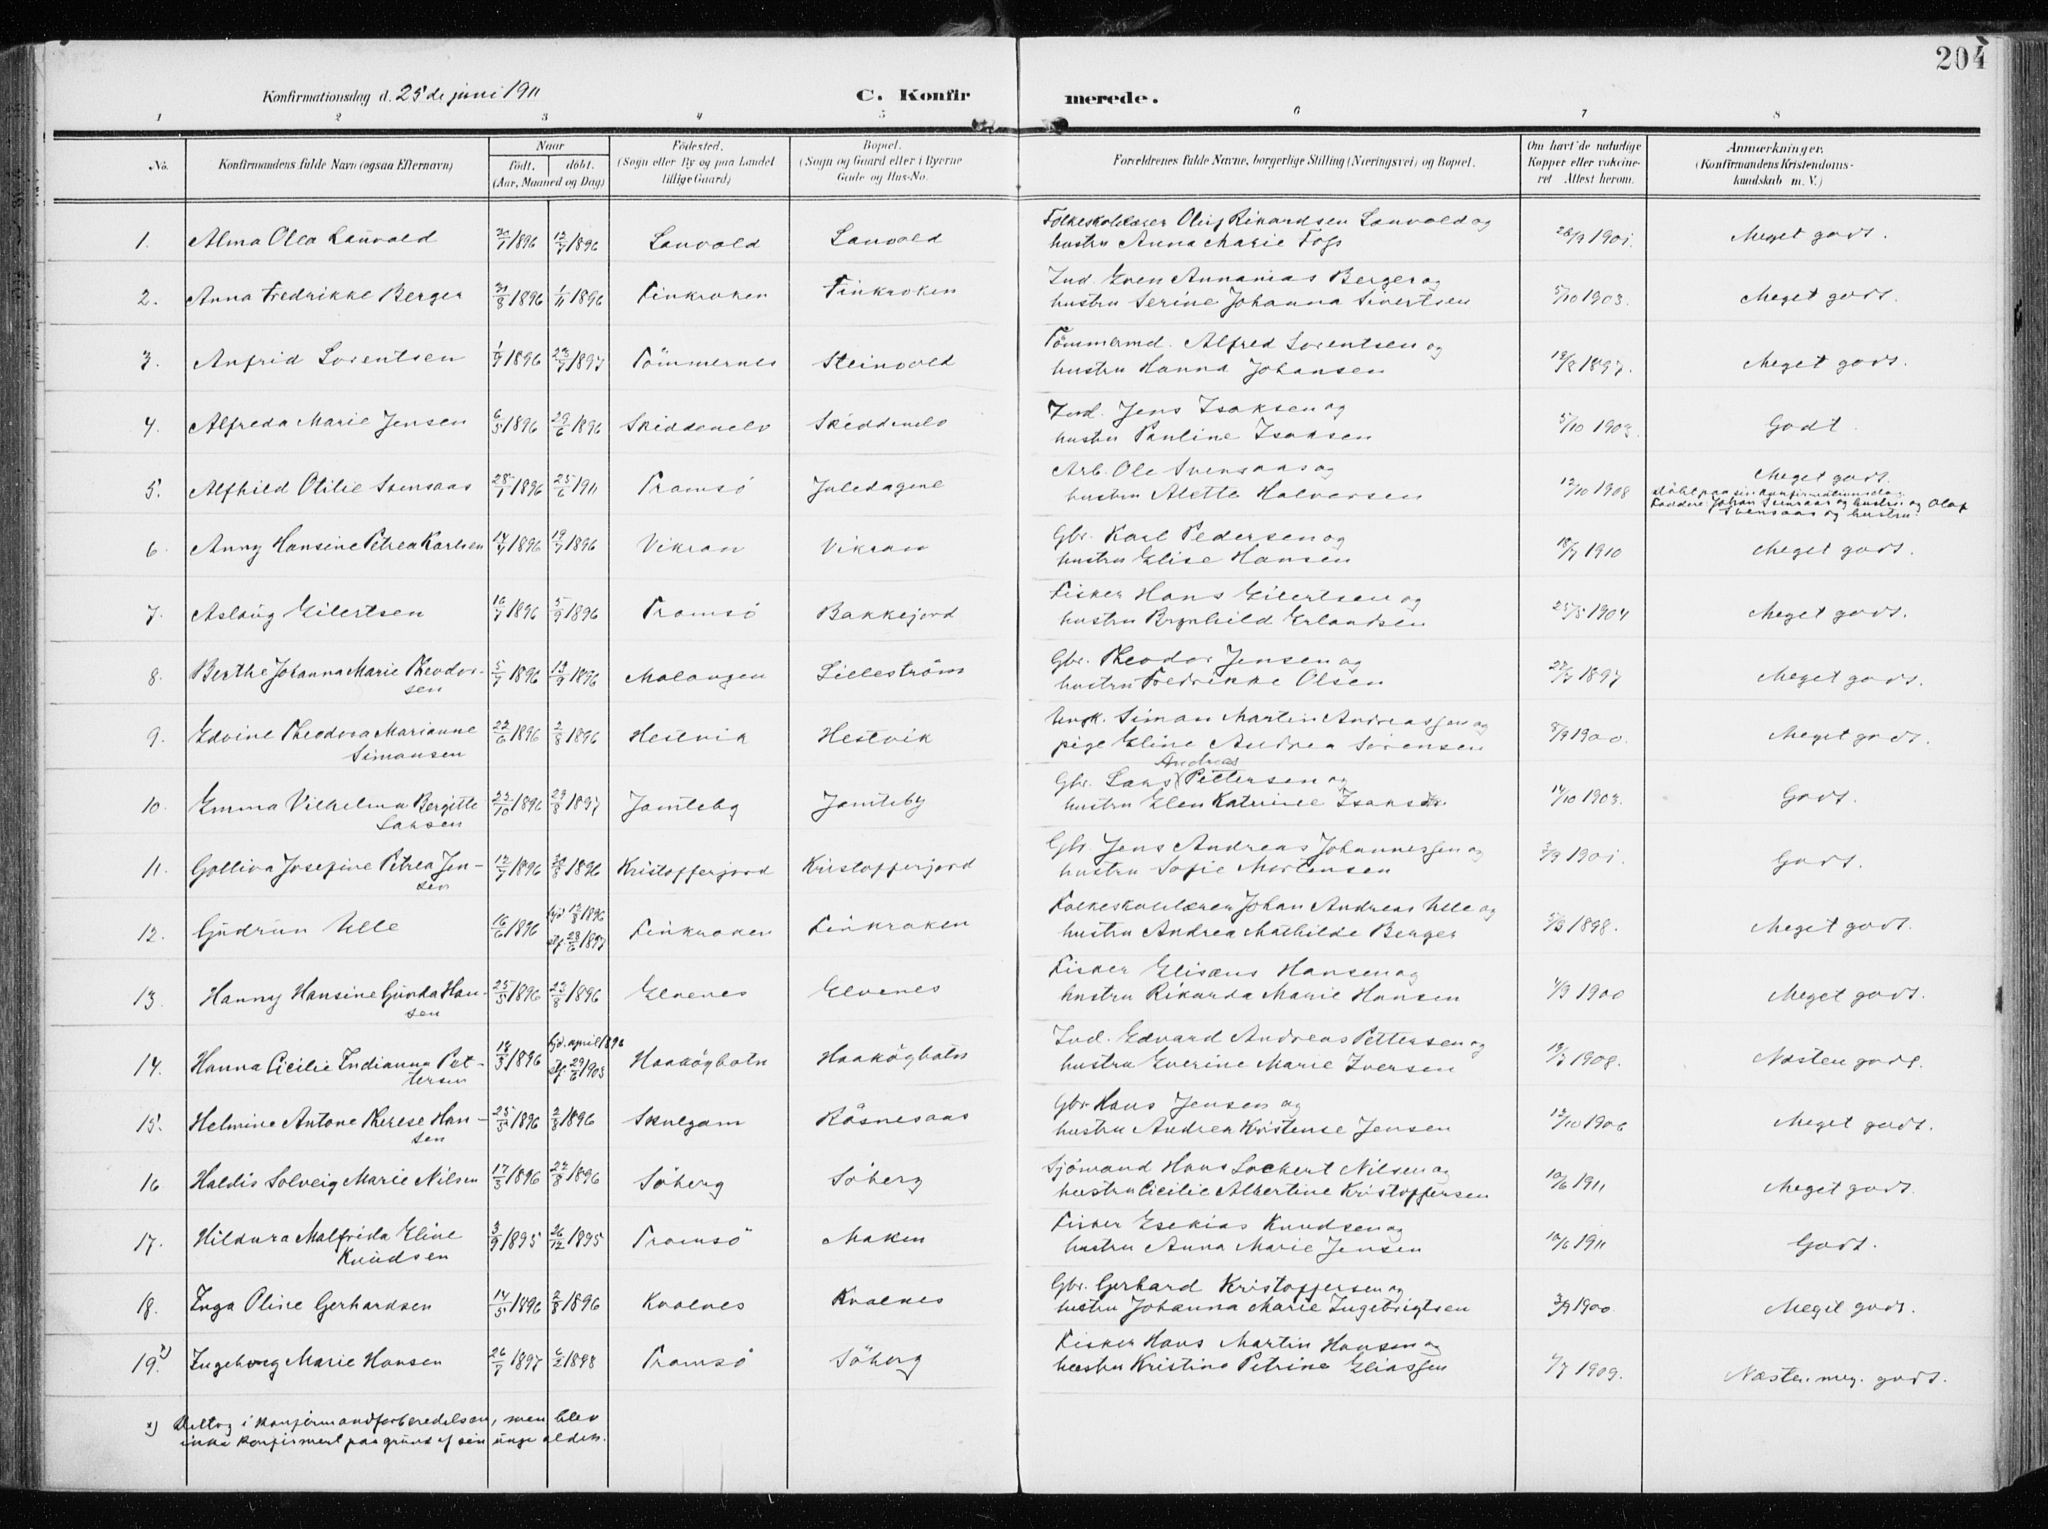 204
Konfirmationsdag d. 25 de juni 1911
C. Konfirmerede.
1 2 3 4 5 6 7 8
No. Konfirmandens fulde Navn (ogsaa Efternavn) Naar født. døbt. (Aar, Maaned og Dag) Fødested. (Sogn eller By og paa Landet tillige Gaard) Bopæl. (Sogn og Gaard eller i Byerne Gade og Hus-No.) Forældrenes fulde Navne, borgerlige Stilling (Næringsvei) og Bopæl. Om havt de naturlige Kopper eller vakcineret Attest herom. Anmærkninger. (Konfirmandens Kristendomskundskab m. V.)
1. Alma Olea Lauvold 1896 12/7 1896 Lauvold Lauvold Folkeskolelærer Oluf Rikardsen Lauvold og
hustru Anna Marie Foss 28/9 1901. Meget godt.
2. Anna Fredrikke Berger 31/8 1896 1/11 1896 Finkroken Finkroken Ind. Even Annanias Berger og
hustru Serine Johanna Sivertsen 5/10 1903. Meget godt.
3. Anfrid Lorentsen 1/9 1896 1897 Tömmernes Steinvold Tömmermd. Alfred Lorentsen og
hustru Hanna Johansen 1897. Meget godt.
4. Alfreda Marie Jensen 6/5 1896 29/6 1896 Skiddenelv Skiddenelv Ind. Jens Isaksen og
hustru Pauline Isaksen 5/10 1903. Godt.
5. Alfhild Otilie Svensaas 28/1 1896 25/6 1911 Tromsö Juledagene Arb. Ole Svensaas og
hustru Alette Halversen 12/10 1908 Meget godt.
döbt paa sin konfirmationsdag.
Faddere: Johan Svensaas og hustru og Olaf
Svensaas og hustru.
6. Anny Hansine Petrea Karlsen 14/4 1896 19/7 1896 Vikran Vikran Gbr. Karl Pedersen og
hustru Elise Hansen 18/7 1910 Meget godt.
7. Aslaug Eilertsen 16/7 1896 5/9 1896 Tromsö Bakkejord Fisker Hans Eilertsen og
hustru Brynhild Erlandsen 25/5 1904 Meget godt.
8. Berthe Johanna Marie Theodor-
sen 5/7 1896 13/9 1896 Malangen Lilleström Gbr. Theodor Jensen og
hustru Fredrikke Olsen 1897 Meget godt.
9. Edvine Theodora Marianne
Simonsen 22/6 1896 2/8 1896 Hestvik Hestvik Ungk. Simon Martin Andreassen og
pige Eline Andrea Sörensen 8/9 1900. Meget godt.
10. Emma Vilhelma Bergitte
Larsen 23/10 1896 29/8 1897 Jamteby Jamteby Gbr. Lars Andreas Pettersen og
hustru Elen Katrine Isaksen 14/10 1903. Godt.
11. Golliva Josefine Petrea Jen-
sen 12/7 1896 1896 Kristofferjord Kristofferjord Gbr. Jens Andreas Johannessen og
hustru Sofie Mortensen 3/9 1901. Godt.
12. Gudrun Ulle 16/6 1896 hjd 12/8 1896
stf. 28/6 1897 Finkroken Finkroken Folkeskolelærer Johan Andreas Ulle og
hustru Andrea Mathilde Berger 1898. Meget godt.
13. Hanny Hansine Gunda Han-
sen 25/5 1896 23/8 1896 Elvenes Elvenes Fisker Elisæus Hansen og
hustru Rikarda Marie Hansen 1/9 1900 Meget godt.
14. Hanna Cicilie Indianna Pet-
tersen 18/3 1896 hjd. april 1896
stf. 29/6 1903 Haaköybotn Haaköybotn Ind. Edvard Andreas Pettersen og
hustru Everine Marie Iversen 1908. Næsten godt.
15. Helmine Antone Therese Han-
sen 25/5 1896 2/8 1896 Skulgam Rösnesaas Gbr. Hans Jensen og
hustru Andrea Kristense Jensen 12/10 1906 Meget godt.
16 Haldis Solveig Marie Nilsen 17/5 1896 1896 Söberg Söberg Sjömand Hans Lockert Nilsen og
hustru Cicilie Albertine Kristoffersen 10/6 1911 Meget godt.
17. Hildura Malfrida Eline
Knudsen 3/9 1895 26/12 1895 Tromsö Maken Fisker Esekias Knudsen og
hustru Anna Marie Jensen 10/6 1911 Godt.
18. Inga Oline Gerhardsen 14/5 1896 2/8 1896 Kvalnes Kvalnes Gbr. Gerhard Kristoffersen og
hustru Johanna Marie Ingebrigtsen 3/9 1900. Meget godt.
19. x) Ingeborg Marie Hansen 26/7 1897 6/2 1898 Tromsö Söberg Fisker Hans Martin Hansen og
hustru Kristine Petrine Eliassen 1/7 1909. Næsten meg. godt.
x) Deltog i konfirmandforberedelsen, men blev
ikke konfirmert paa grund af sin unge alder.